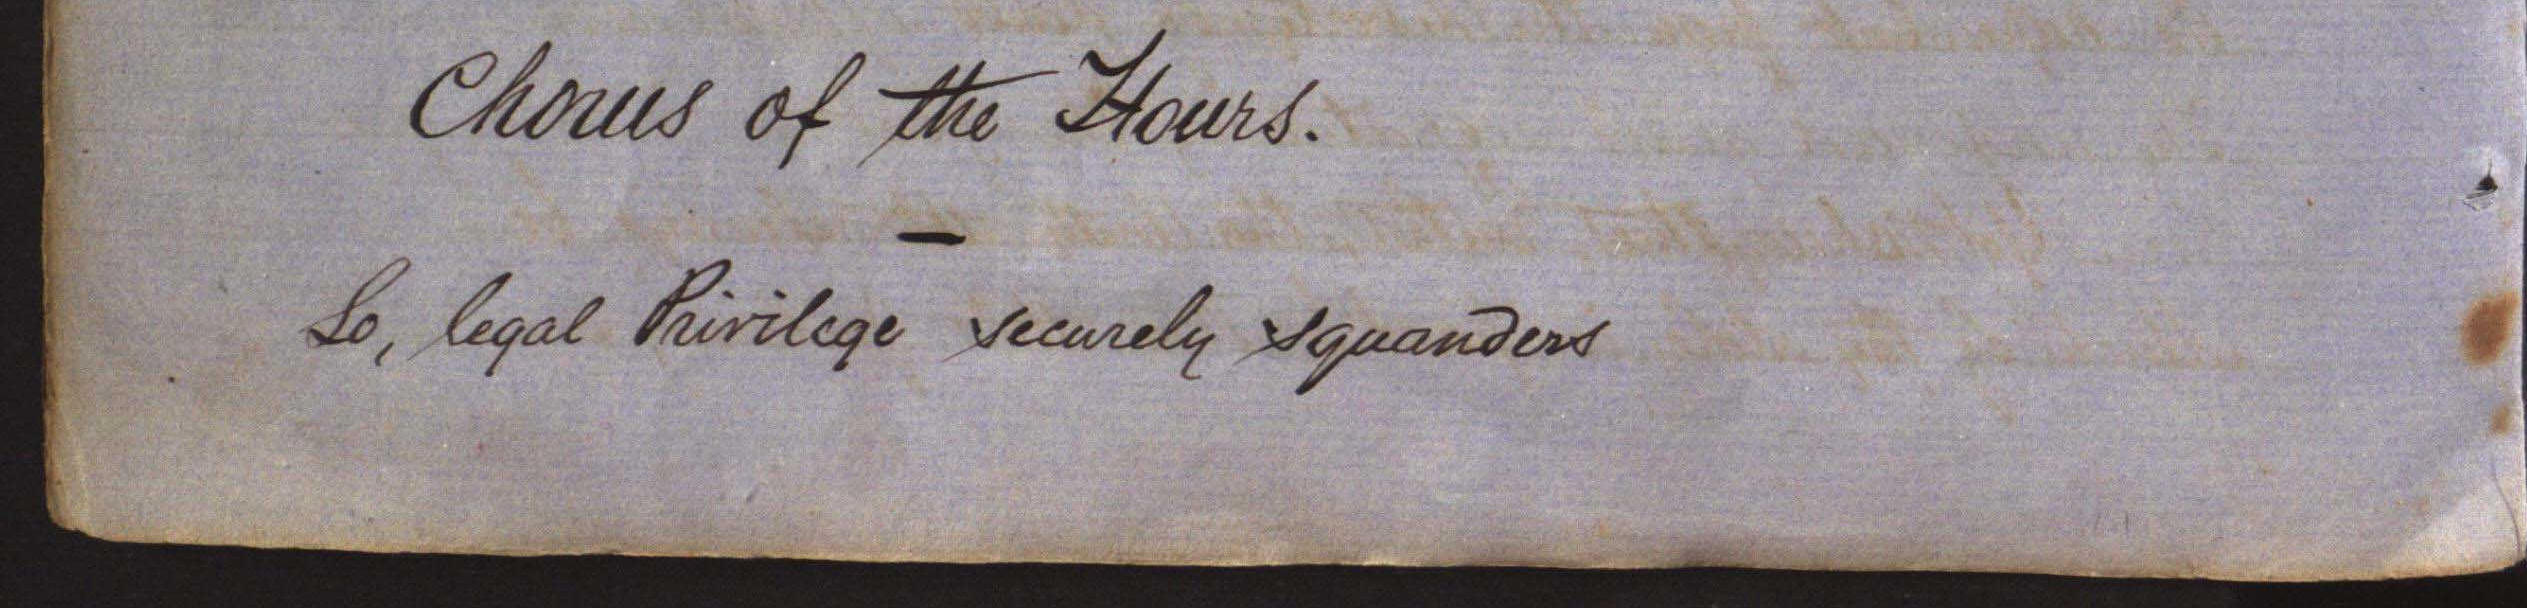 Chorus of the Hours.
—
So, legal Privilege securely squanders